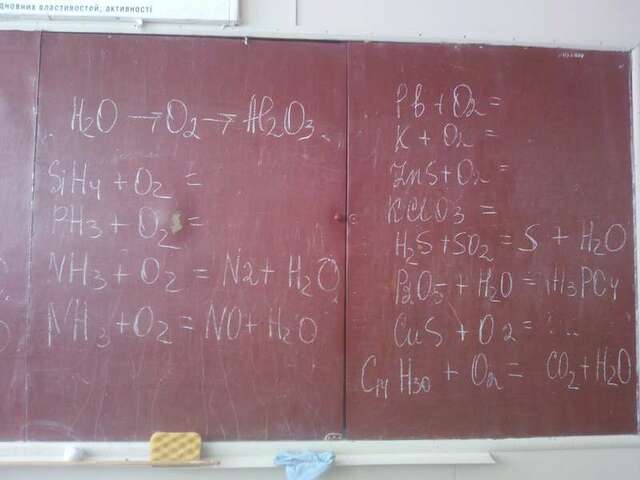 дновних властивостей, активності
H2O → O2 → Al2O3
SiH4 + O2 =
PH3 + O2 =
NH3 + O2 = N2 + H2O
NH3 + O2 = NO + H2O
Pb + O2 =
K + O2 =
ZnS + O2 =
KClO3 =
H2S + SO2 = S + H2O
P2O5 + H2O = H3PO4
CuS + O2 = ...
C14H30 + O2 = CO2 + H2O